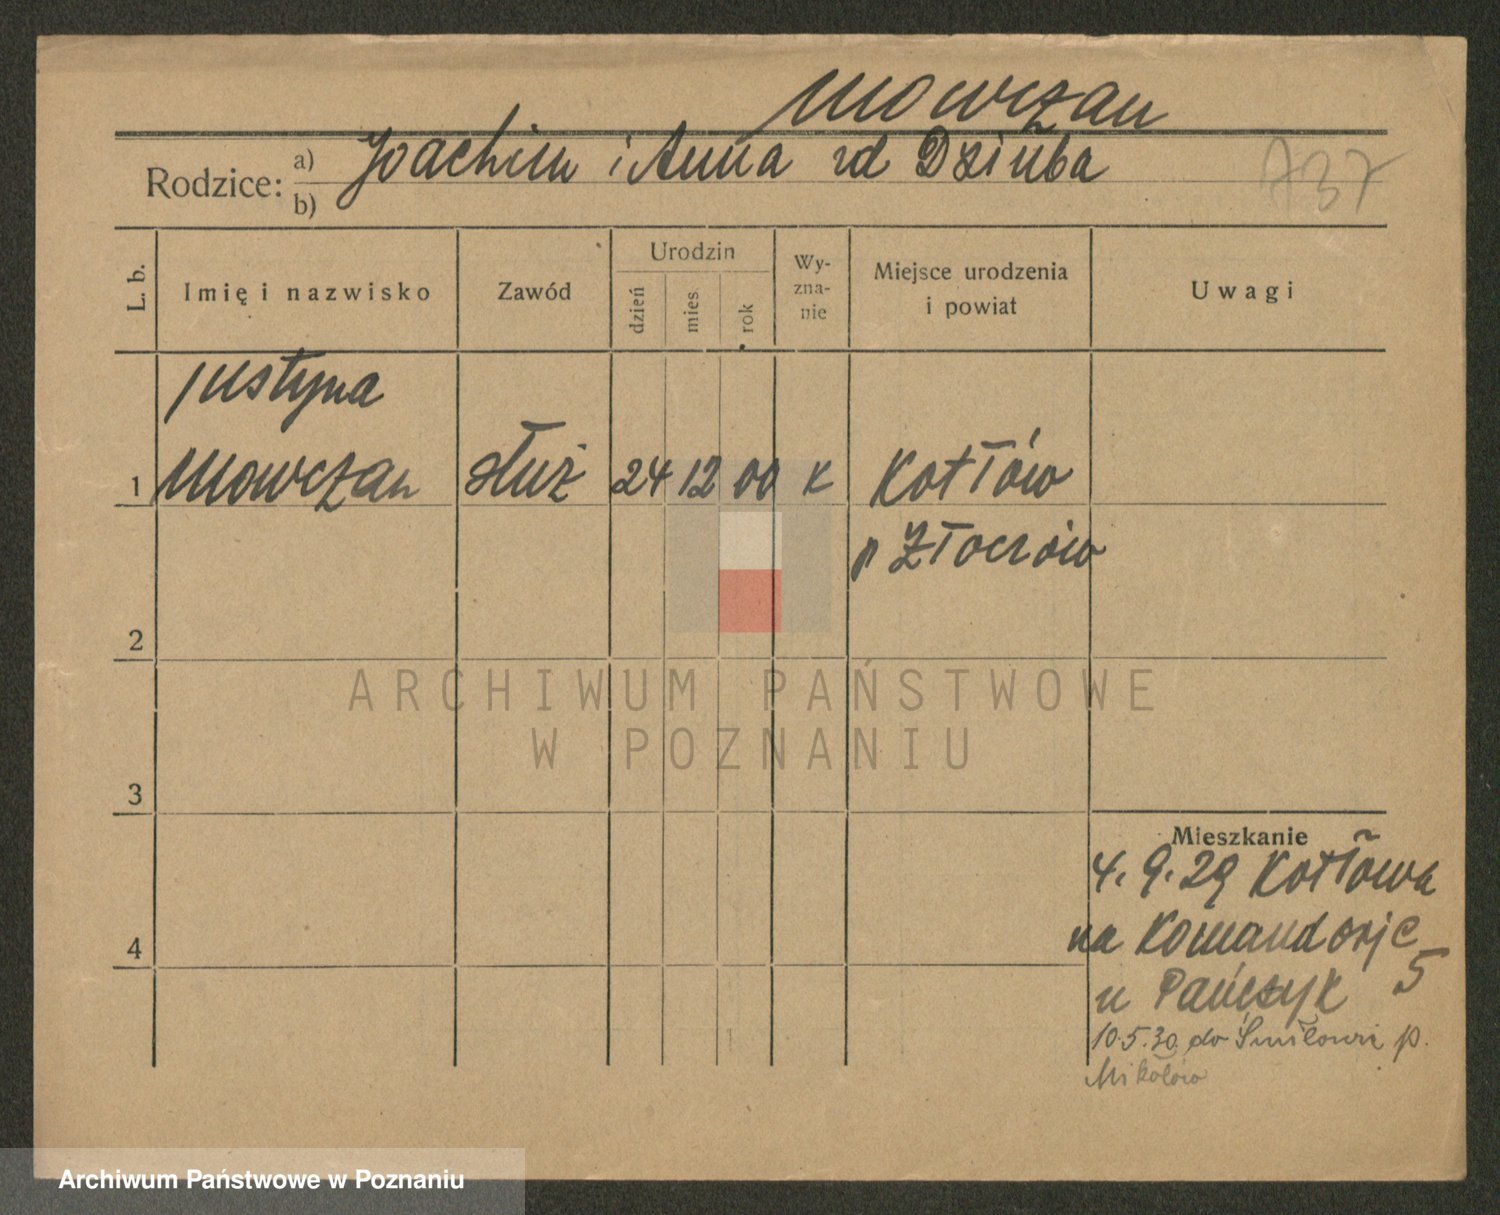 Mowczan
Rodzice: a) Joachim i Anna zd Dziuba
b)
737
L. b.
Imię i nazwisko
Zawód
Urodzin
dzień
mies
rok
Wy-
zna-
nie
Miejsce urodzenia
i powiat
Uwagi
Justyna
1 Mowczan służ 24 12 00 k Kotłów
p Złoczów
2
3
4
Mieszkanie
4.9.29 Kotłowa
na Komandorje
u Pańczyk 5
10.5.30 do p.
Mikołów
ARCHIWUM PAŃSTWOWE
W POZNANIU
Archiwum Państwowe w Poznaniu